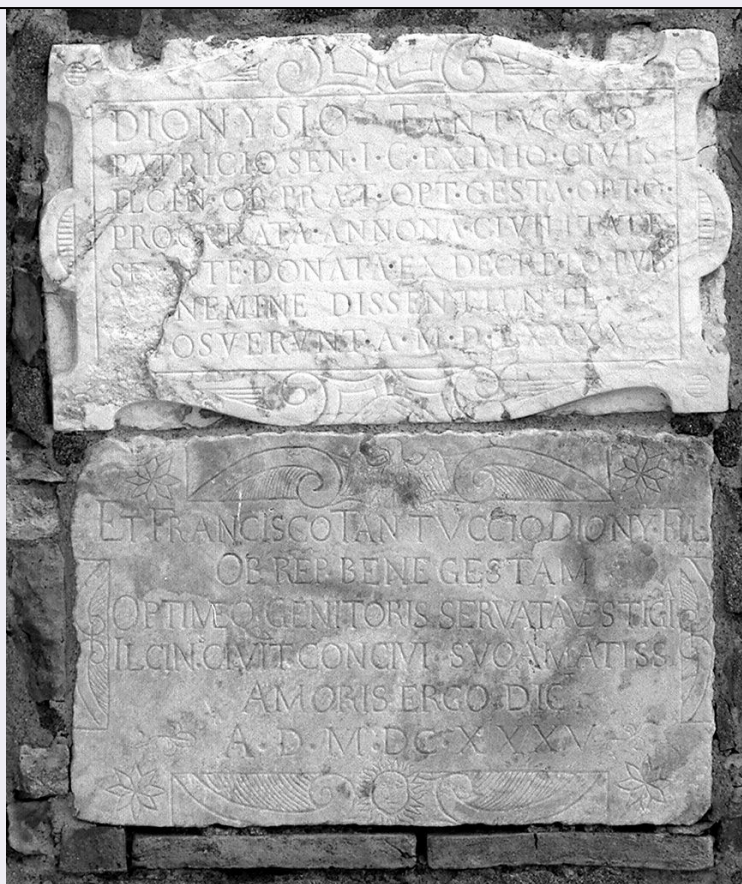 DIONYSIO TANTVCCIO
PATRICIO SEN·I·C·EXIMIO·CIVES
ILCIN·OB PRÆT·OPT·GESTA·OPT·Q·
PROCVRATA·ANNONA·CIVILITATE
DONATA·EX DECRETO PVB·
NEMINE DISSENTIENTE·
OSVERVNT·A·M·D·LXXXX
ET FRANCISCO TANTVCCIO DIONY·FIL
OB REP. BENE GESTAM
OPTIMEQ·GENITORIS SERVATA VESTIGI
ILCIN·CIVIT·CONCIVI SVO AMATISS
AMORIS ERGO DIC
A·D·M·DC·XXXXV